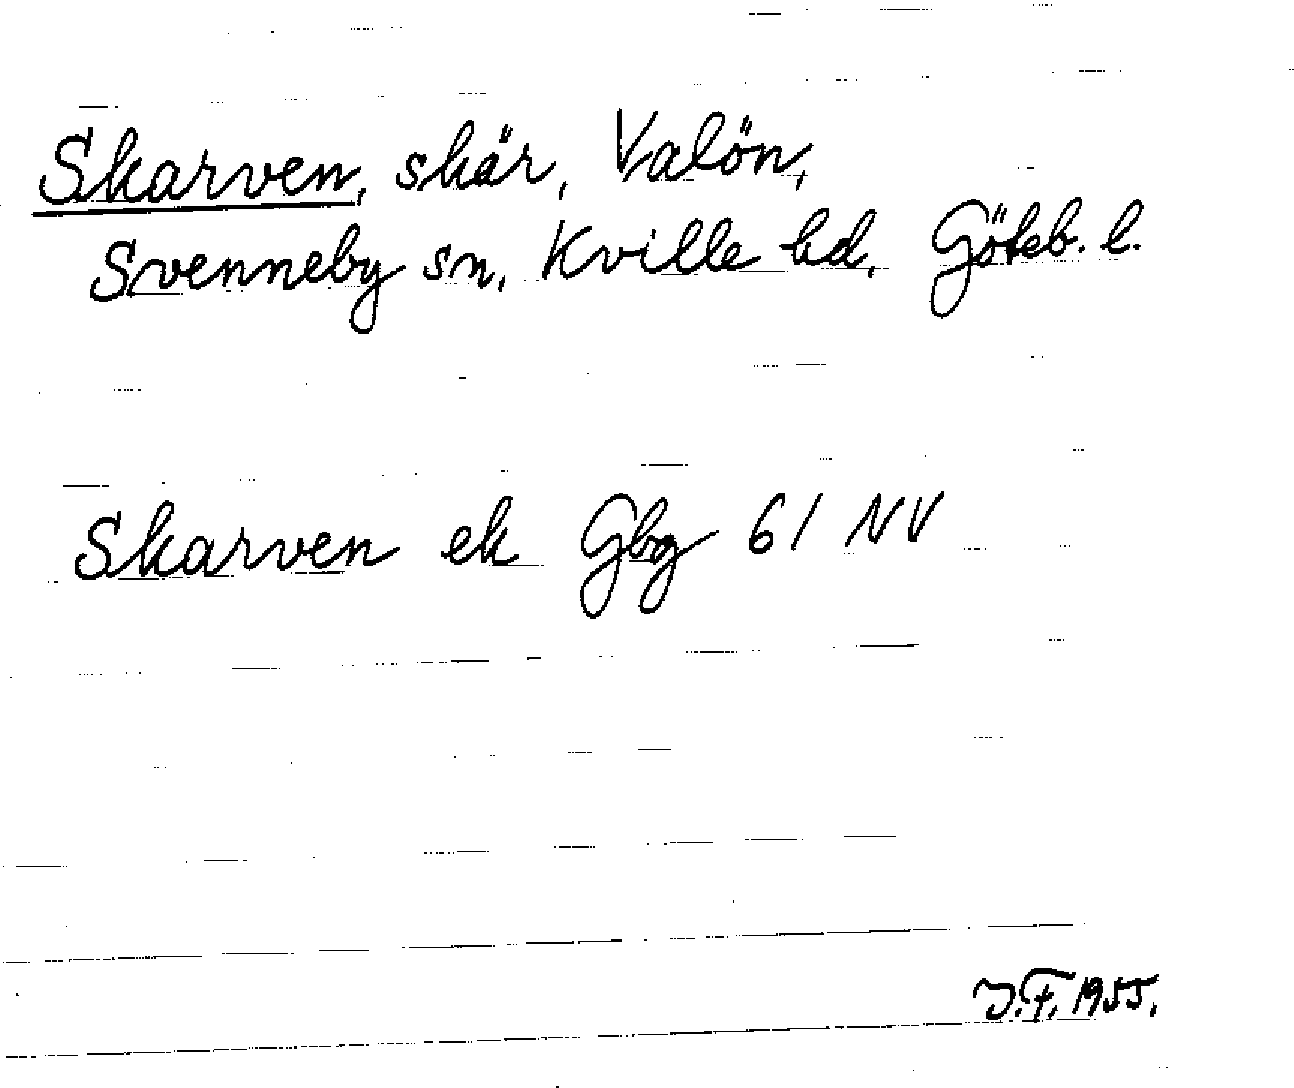 Skarven, skär, Valön,
Svenneby sn, Kville hd, Göteb. l.
Skarven ek Gbg 61 NV
J.F. 1955.